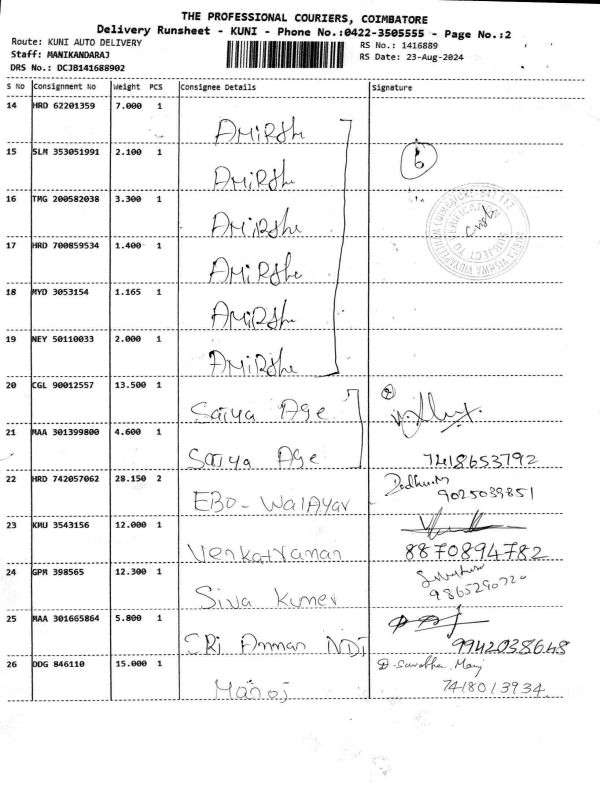 THE PROFESSIONAL COURIERS, COIMBATORE
Delivery Runsheet - KUNI - Phone No.:0422-3505555 - Page No.:2
Route: KUNI AUTO DELIVERY
RS No.: 1416889
Staff: MANIKANDARAJ
RS Date: 23-Aug-2024
DRS No.: DCJB141688902
S No Consignment No Weight PCS Consignee Details Signature
14 HRD 62201359 7.000 1
AMIRShe
15 SLM 353051991 2.100 1
AMIRShe
6
16 TMG 200582038 3.300 1
AMIRShe
17 HRD 700859534 1.400 1
AMIRShe
18 MYD 3053154 1.165 1
AMIRShe
19 NEY 50110033 2.000 1
AMIRShe
20 CGL 90012557 13.500 1
Sarya Age
2
21 MAA 301399800 4.600 1
Sarya Age
7418653792
22 HRD 742057062 28.150 2
EBO - WalAyar
9025039851
23 KMU 3543156 12.000 1
Venkatraman
8870894782
24 GPM 398565 12.300 1
Siva Kumer
9865290720
25 MAA 301665864 5.800 1
SRi Amman NDT
9942038648
26 DDG 846110 15.000 1
Manoj
7418013934